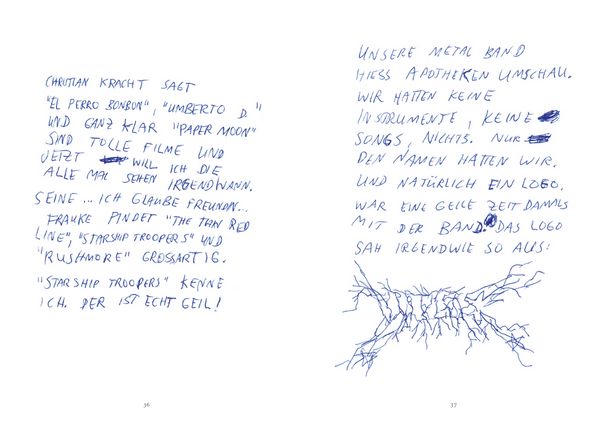 CHRISTIAN KRACHT SAGT
"EL PERRO BONBON", "UMBERTO D."
UND GANZ KLAR "PAPER MOON"
SIND TOLLE FILME UND
JETZT WILL ICH DIE
ALLE MAL SEHEN IRGENDWANN.
SEINE... ICH GLAUBE FREUNDIN...
FRAUKE FINDET "THE THIN RED
LINE", "STARSHIP TROOPERS" UND
"RUSHMORE" GROSSARTIG.
"STARSHIP TROOPERS" KENNE
ICH. DER IST ECHT GEIL!
36
UNSERE METAL BAND
HIESS APOTHEKEN UMSCHAU.
WIR HATTEN KEINE
INSTRUMENTE, KEINE
SONGS, NICHTS. NUR
DEN NAMEN HATTEN WIR.
UND NATÜRLICH EIN LOGO.
WAR EINE GEILE ZEIT DAMALS
MIT DER BAND. DAS LOGO
SAH IRGENDWIE SO AUS:
37